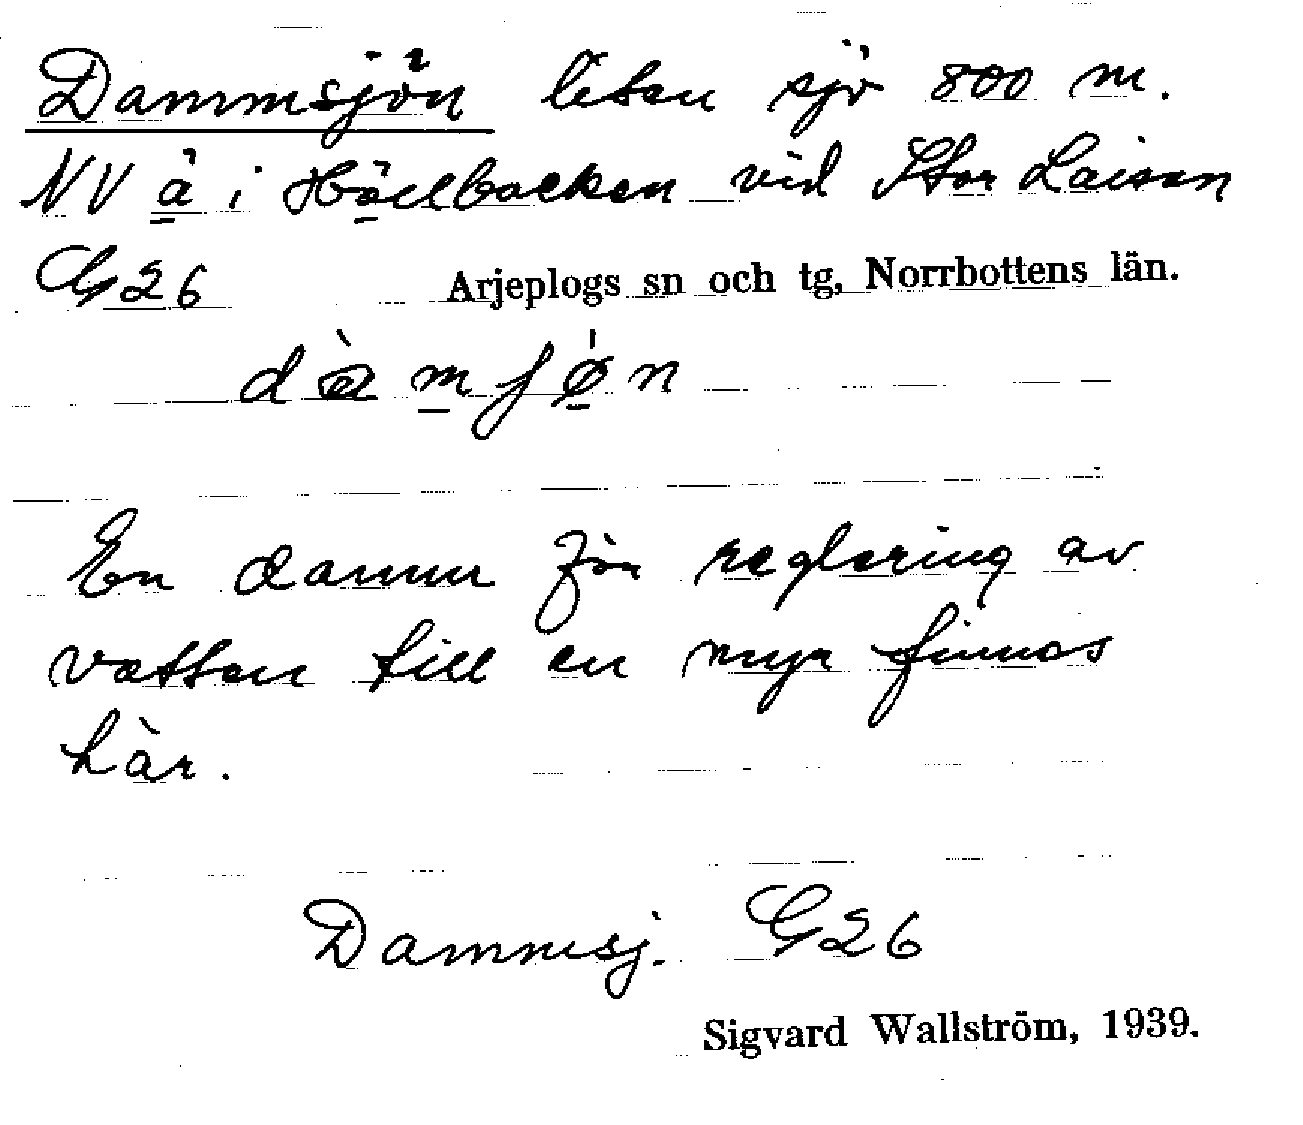 Dammsjön liten sjö 800 m.
NV å i Hällbacken vid Stor Laisan
G26 Arjeplogs sn och tg, Norrbottens län.
En damm för reglering av
vatten till en myr finnes
här.
Dammsj. G26
Sigvard Wallström, 1939.